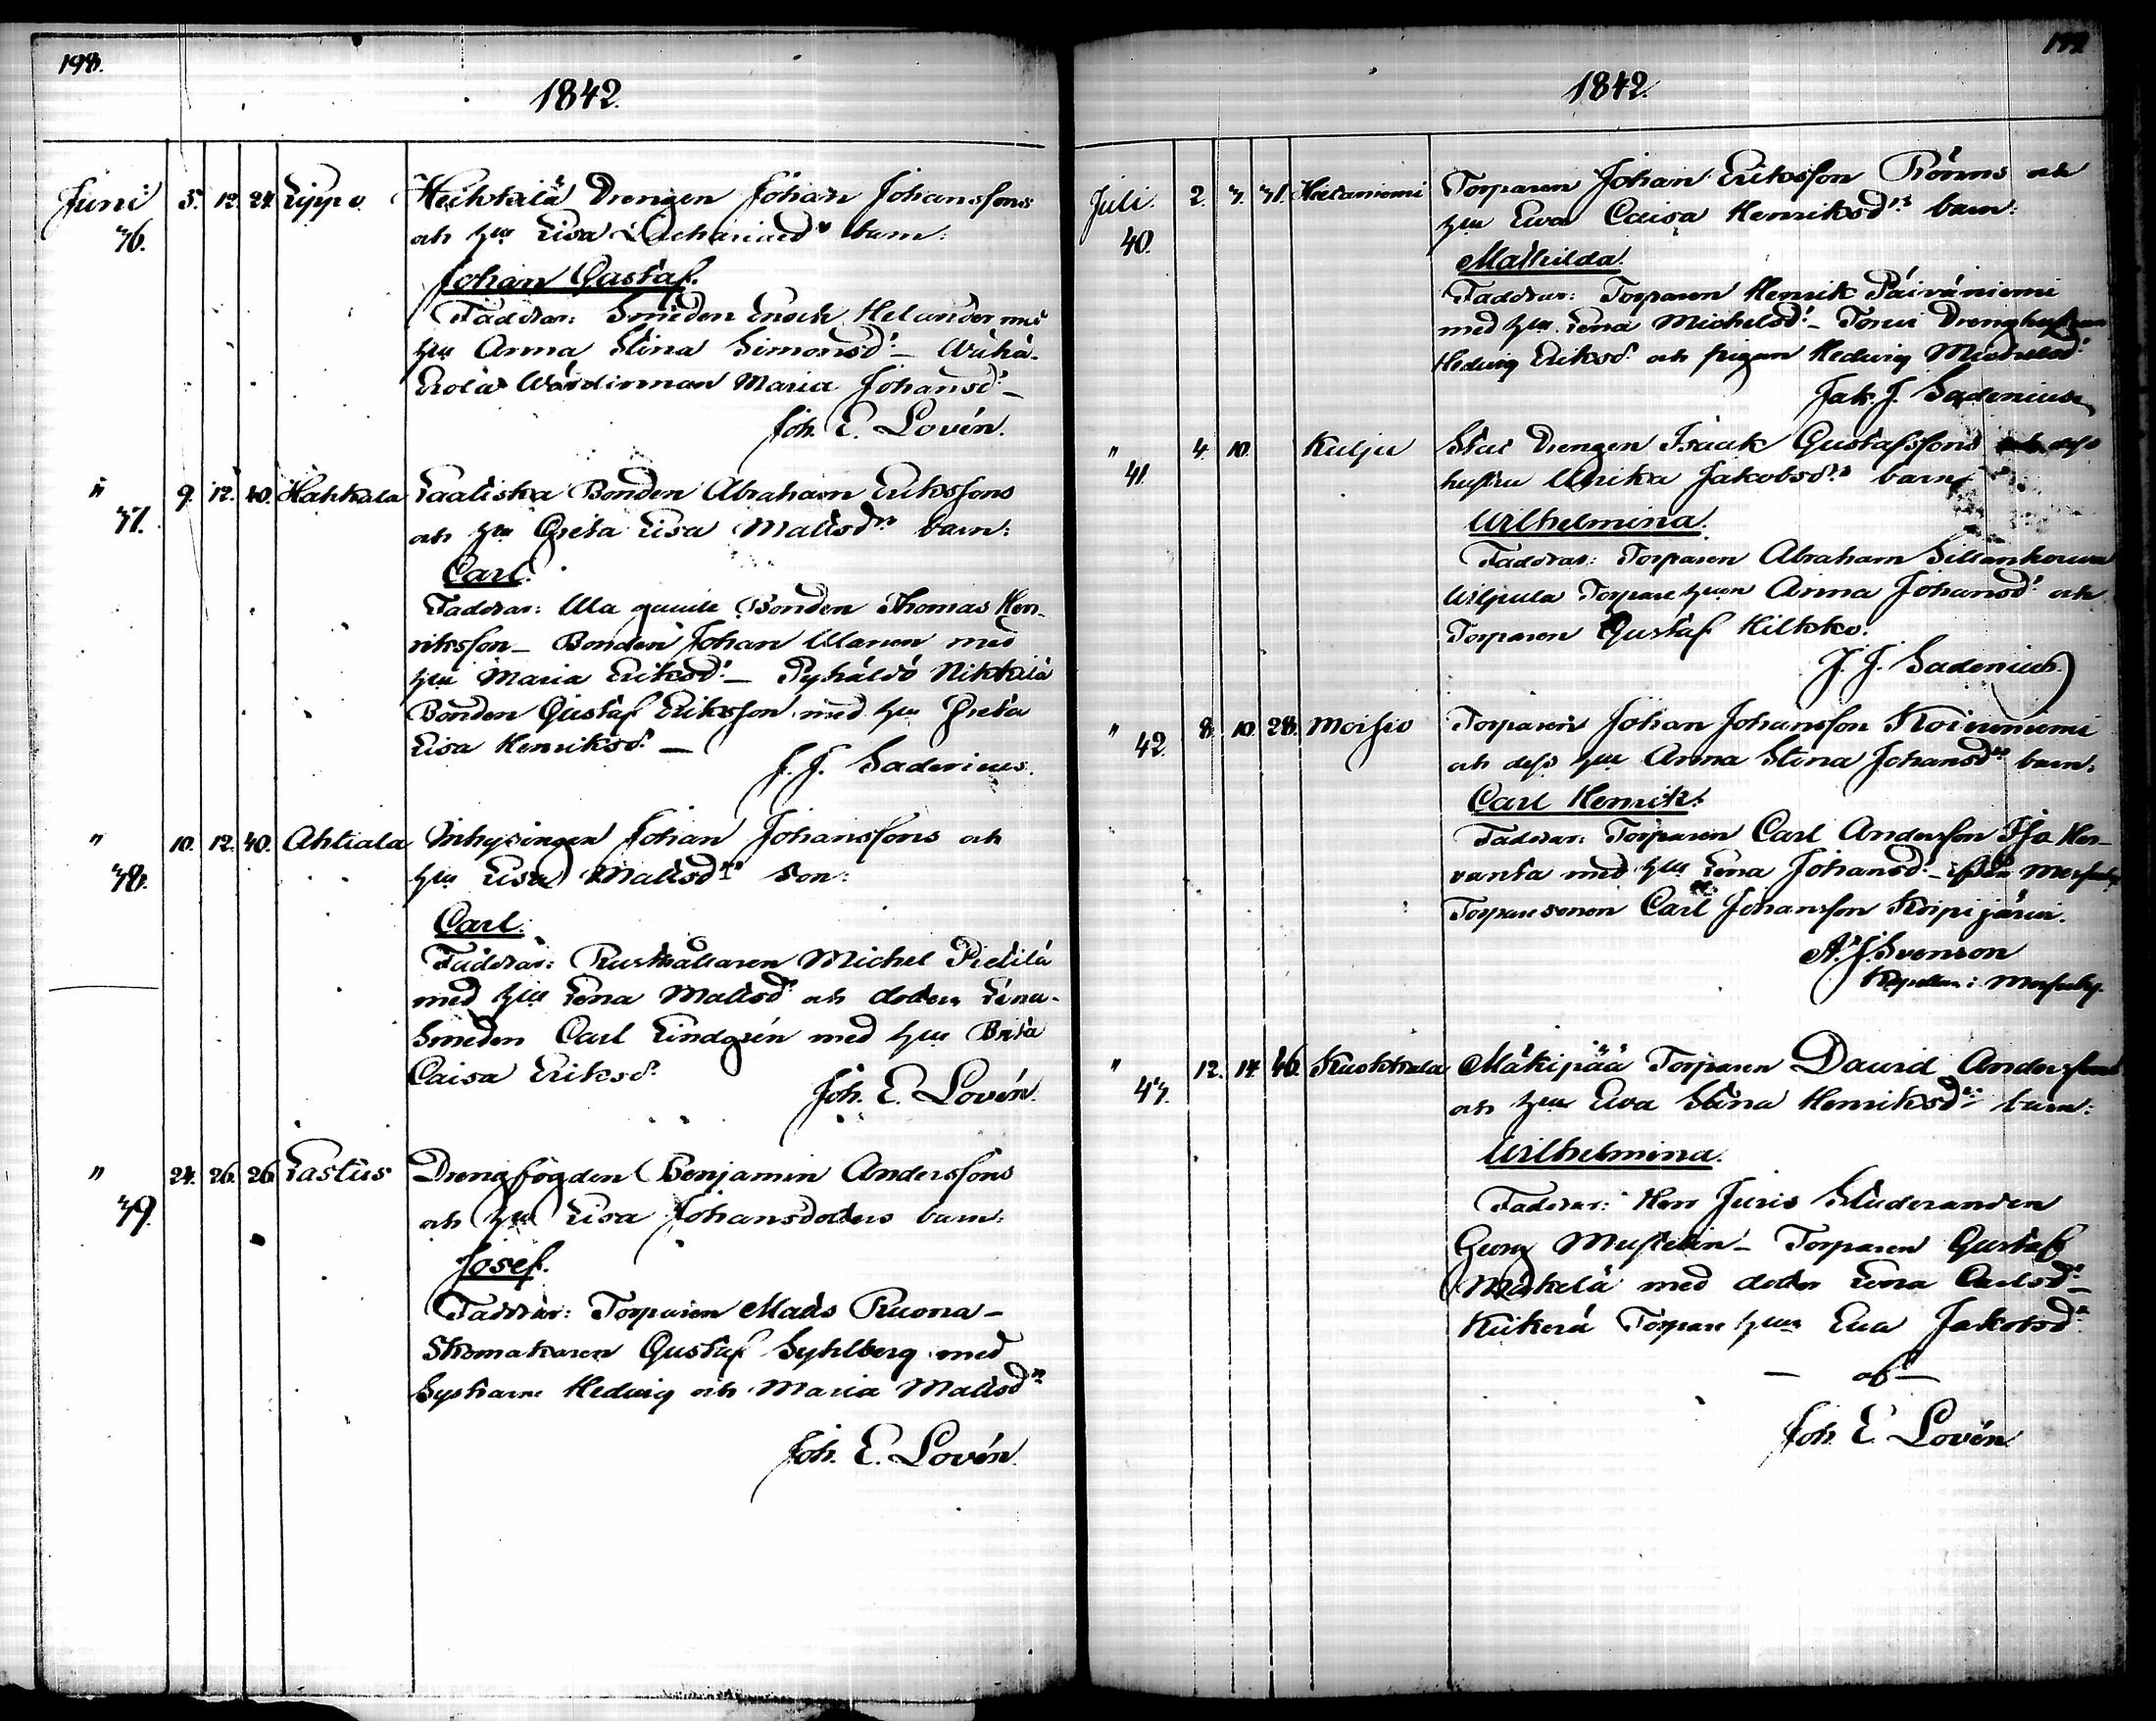 198.
1842.
Juni 5. 12. 24. Lippo Heikkilä Drengen Johan Johanssons
36. och hu Lisa Zachariaed:s barn:
Johan Gustaf.
Faddrar: Smeden Enoch Helander med
hu Anna Stina Simonsd:r –
Erola Wärdinnan Maria Johansd:r –
Joh. E. Lovén.
" 9. 12. 40. Hahkala Laaliska Bonden Abraham Erikssons
37. och hu Greta Lisa Mattsd:rs barn:
Carl.
Faddrar: Bonden Thomas Hen-
riksson – Bonden Johan Ulanen med
hu Maria Eriksd:r – Pyhäldö Nikkilä
Bonden Gustaf Eriksson med hu Greta
Lisa Henriksd:r –
J. J. Sadenius.
" 10. 12. 40. Ahtiala Inhysingen Johan Johanssons och
38. hu Lisa Mattsd:rs Son:
Carl.
Faddrar: Rusthållaren Michel Pietilä
med hu Lena Mattsd:r och dottern Lena –
Smeden Carl Lindgrén med hu Brita
Caisa Eriksd:r
Joh. E. Lovén.
" 24. 26. 26. Lastus Drengfogden Benjamin Anderssons
39. och hu Lisa Johansdotters barn:
Josef.
Faddrar: Torparen Matts Ruona –
Skomakaren Gustaf Syhlberg med
Systrarne Hedwig och Maria Mattsd:r
Joh. E. Lovén.
199.
1842.
Juli. 2. 3. 31. Hietaniemi Torparen Johan Eriksson Römns och
40. hu Ewa Caisa Henriksd:rs barn:
Mathilda.
Faddrar: Torparen Henrik Päiväniemi
med hu Lena Michelsd:r – Drenghustrun
Hedwig Eriksd:r och pigan Hedwig Michelsd:r
Jak. J. Sadenius
" 4. 10. Kulju Drengen Isaak Gustafssons dess
41. hustru Ulrika Jakobsd:rs barn
Wilhelmina.
Faddrar: Torparen Abraham Sillankorwa
Wiljula Torpare hun Anna Johansd:r och
Torparen Gustaf Kilkko.
J. J. Sadenius.
" 8. 10. 28. Moisio Torparen Johan Johansson Koiwuniemi
42. och dess hu Anna Stina Johansd:rs barn:
Carl Henrik.
Faddrar: Torparen Carl Andersson Iso Her-
vanta med hu Lena Johansd:r –
Torparesonen Carl Johansson Koipijärvi.
A. J. Svenson
Kapellan i Messuby.
" 12. 14. 46. Kuokkala Mäkipää Torparen David Anderssons
43. och hu Ewa Stina Henriksd:rs barn:
Wilhelmina.
Faddrar: Herr Juris Studeranden
Georg Mustelin – Torparen Gustaf
Mäkelä med dotter Lena Carlsd:r –
Kukerä Torpare hun Eva Jakobsd:r
— af —
Joh. E. Lovén